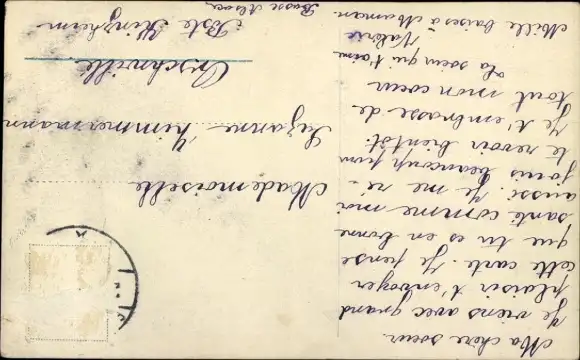 Ma chère soeur
Je viens avec grand
plaisir t'envoyer
cette carte. Je pense
que tu es en bonne
santé comme moi
aussi. Je me ré-
jouis beaucoup pour
te revoir bientôt.
Je t'embrasse de
tout mon coeur
La soeur qui t'aime
Valérie
Mille baises à Maman.
Mademoiselle
Suzanne Zimmermann
Poste
Basse Alsace